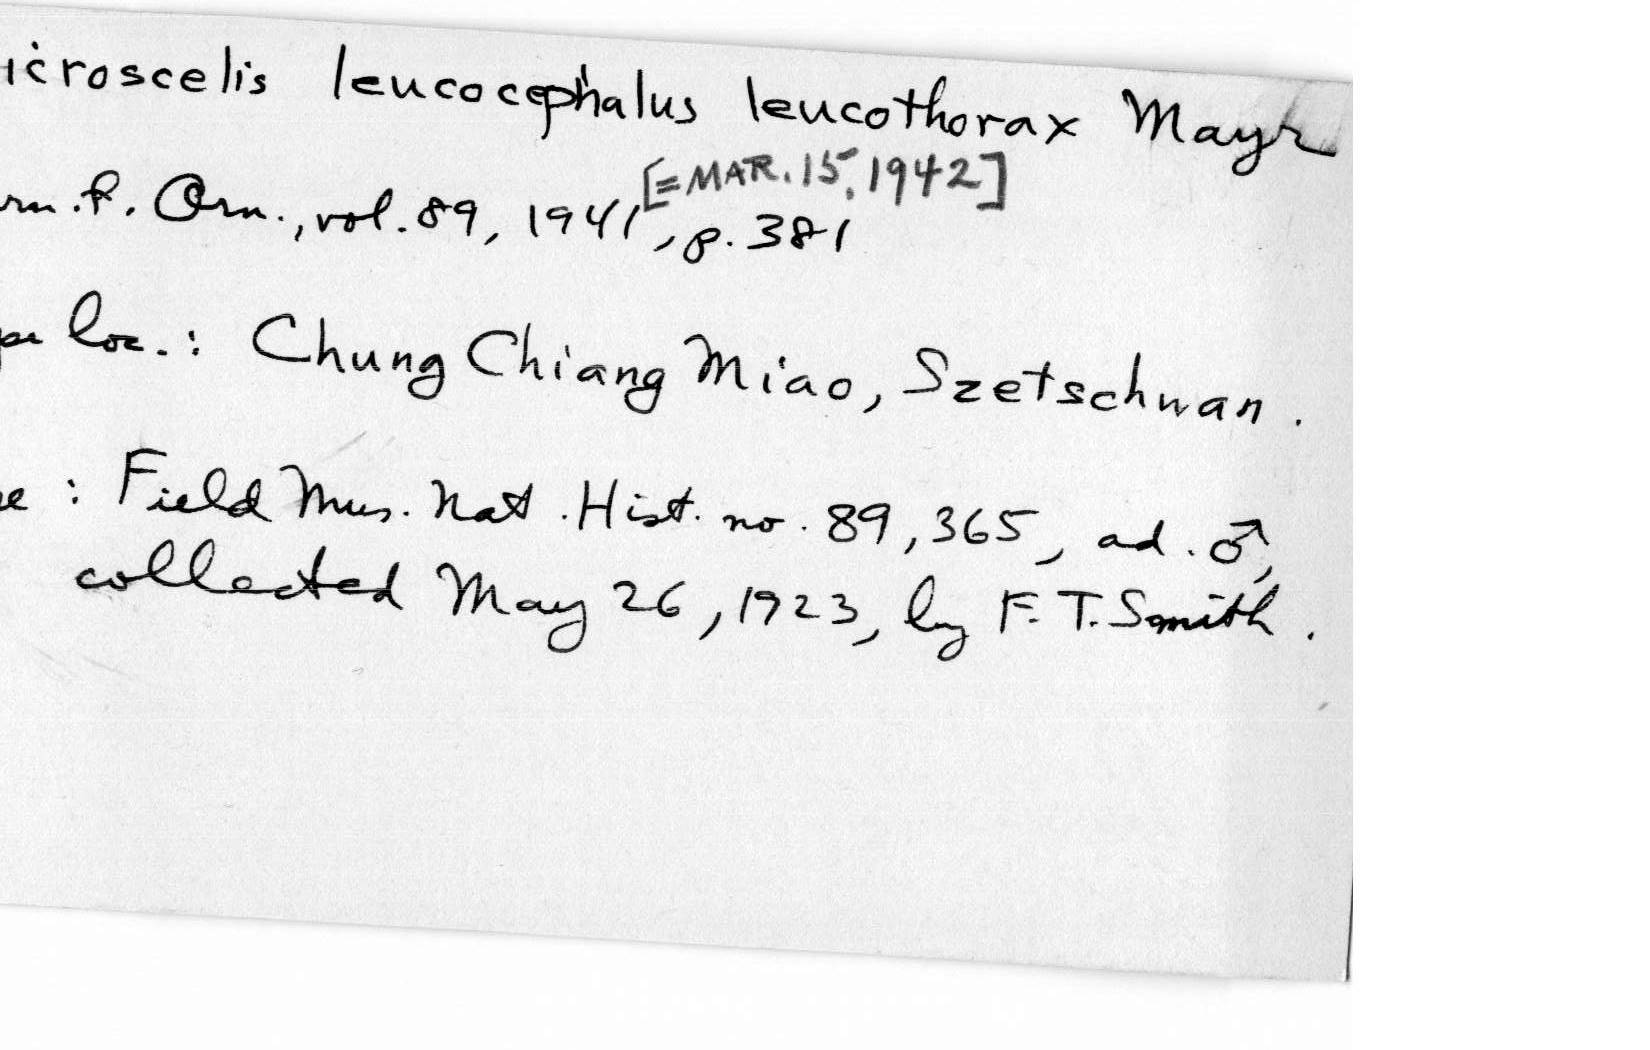 icroscelis leucocephalus leucothorax Mayr
[=MAR. 15, 1942]
rn. f. Orn., vol. 89, 1941, p. 381
pe loc.: Chung Chiang Miao, Szetschwan.
e : Field Mus. Nat. Hist. no. 89,365, ad. ♂,
collected May 26, 1923, by F. T. Smith.